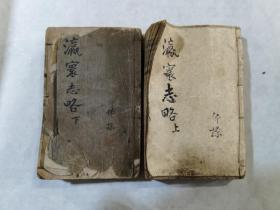 瀛寰志略上
瀛寰志略下